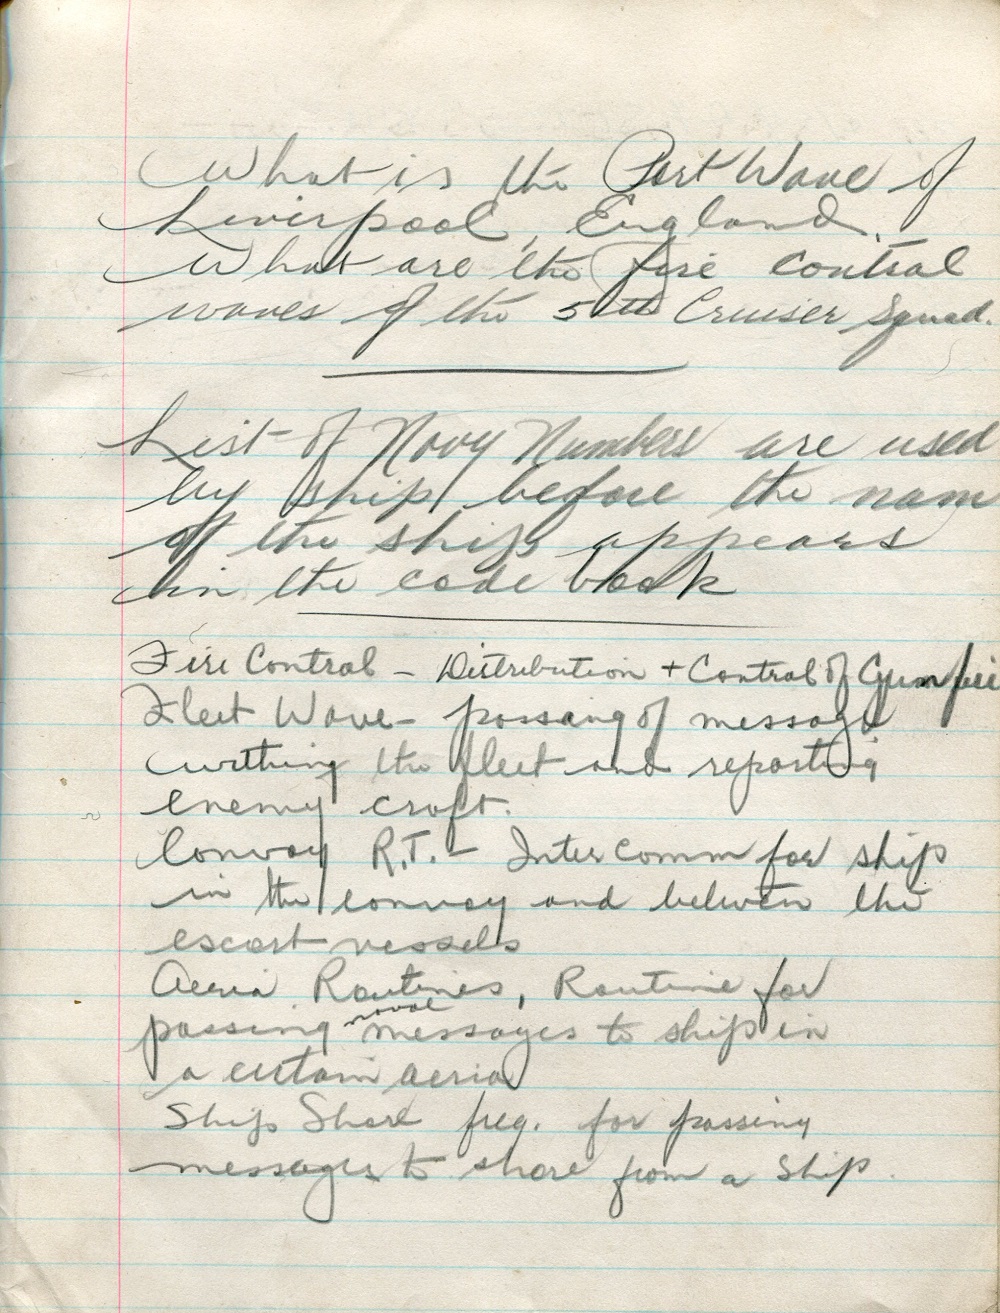 What is the Port Wave of
Liverpool, England.
What are the fire control
waves of the 5th Cruiser Squad.
List of Navy Numbers are used
by ship before the nam
of the ship appears
in the code book
Fire Control - Distribution + Control of Gunfire
Fleet Wave - possang of message
withing the fleet and reporting
enemy craft.
Convoy R.T. - Inter comm for ship
in the convoy and between the
escort vessels
Aeria Routines, Routine for
passing naval messages to ship in
a certain aeria
Ship Shore freq. for passing
messages to shore from a ship.